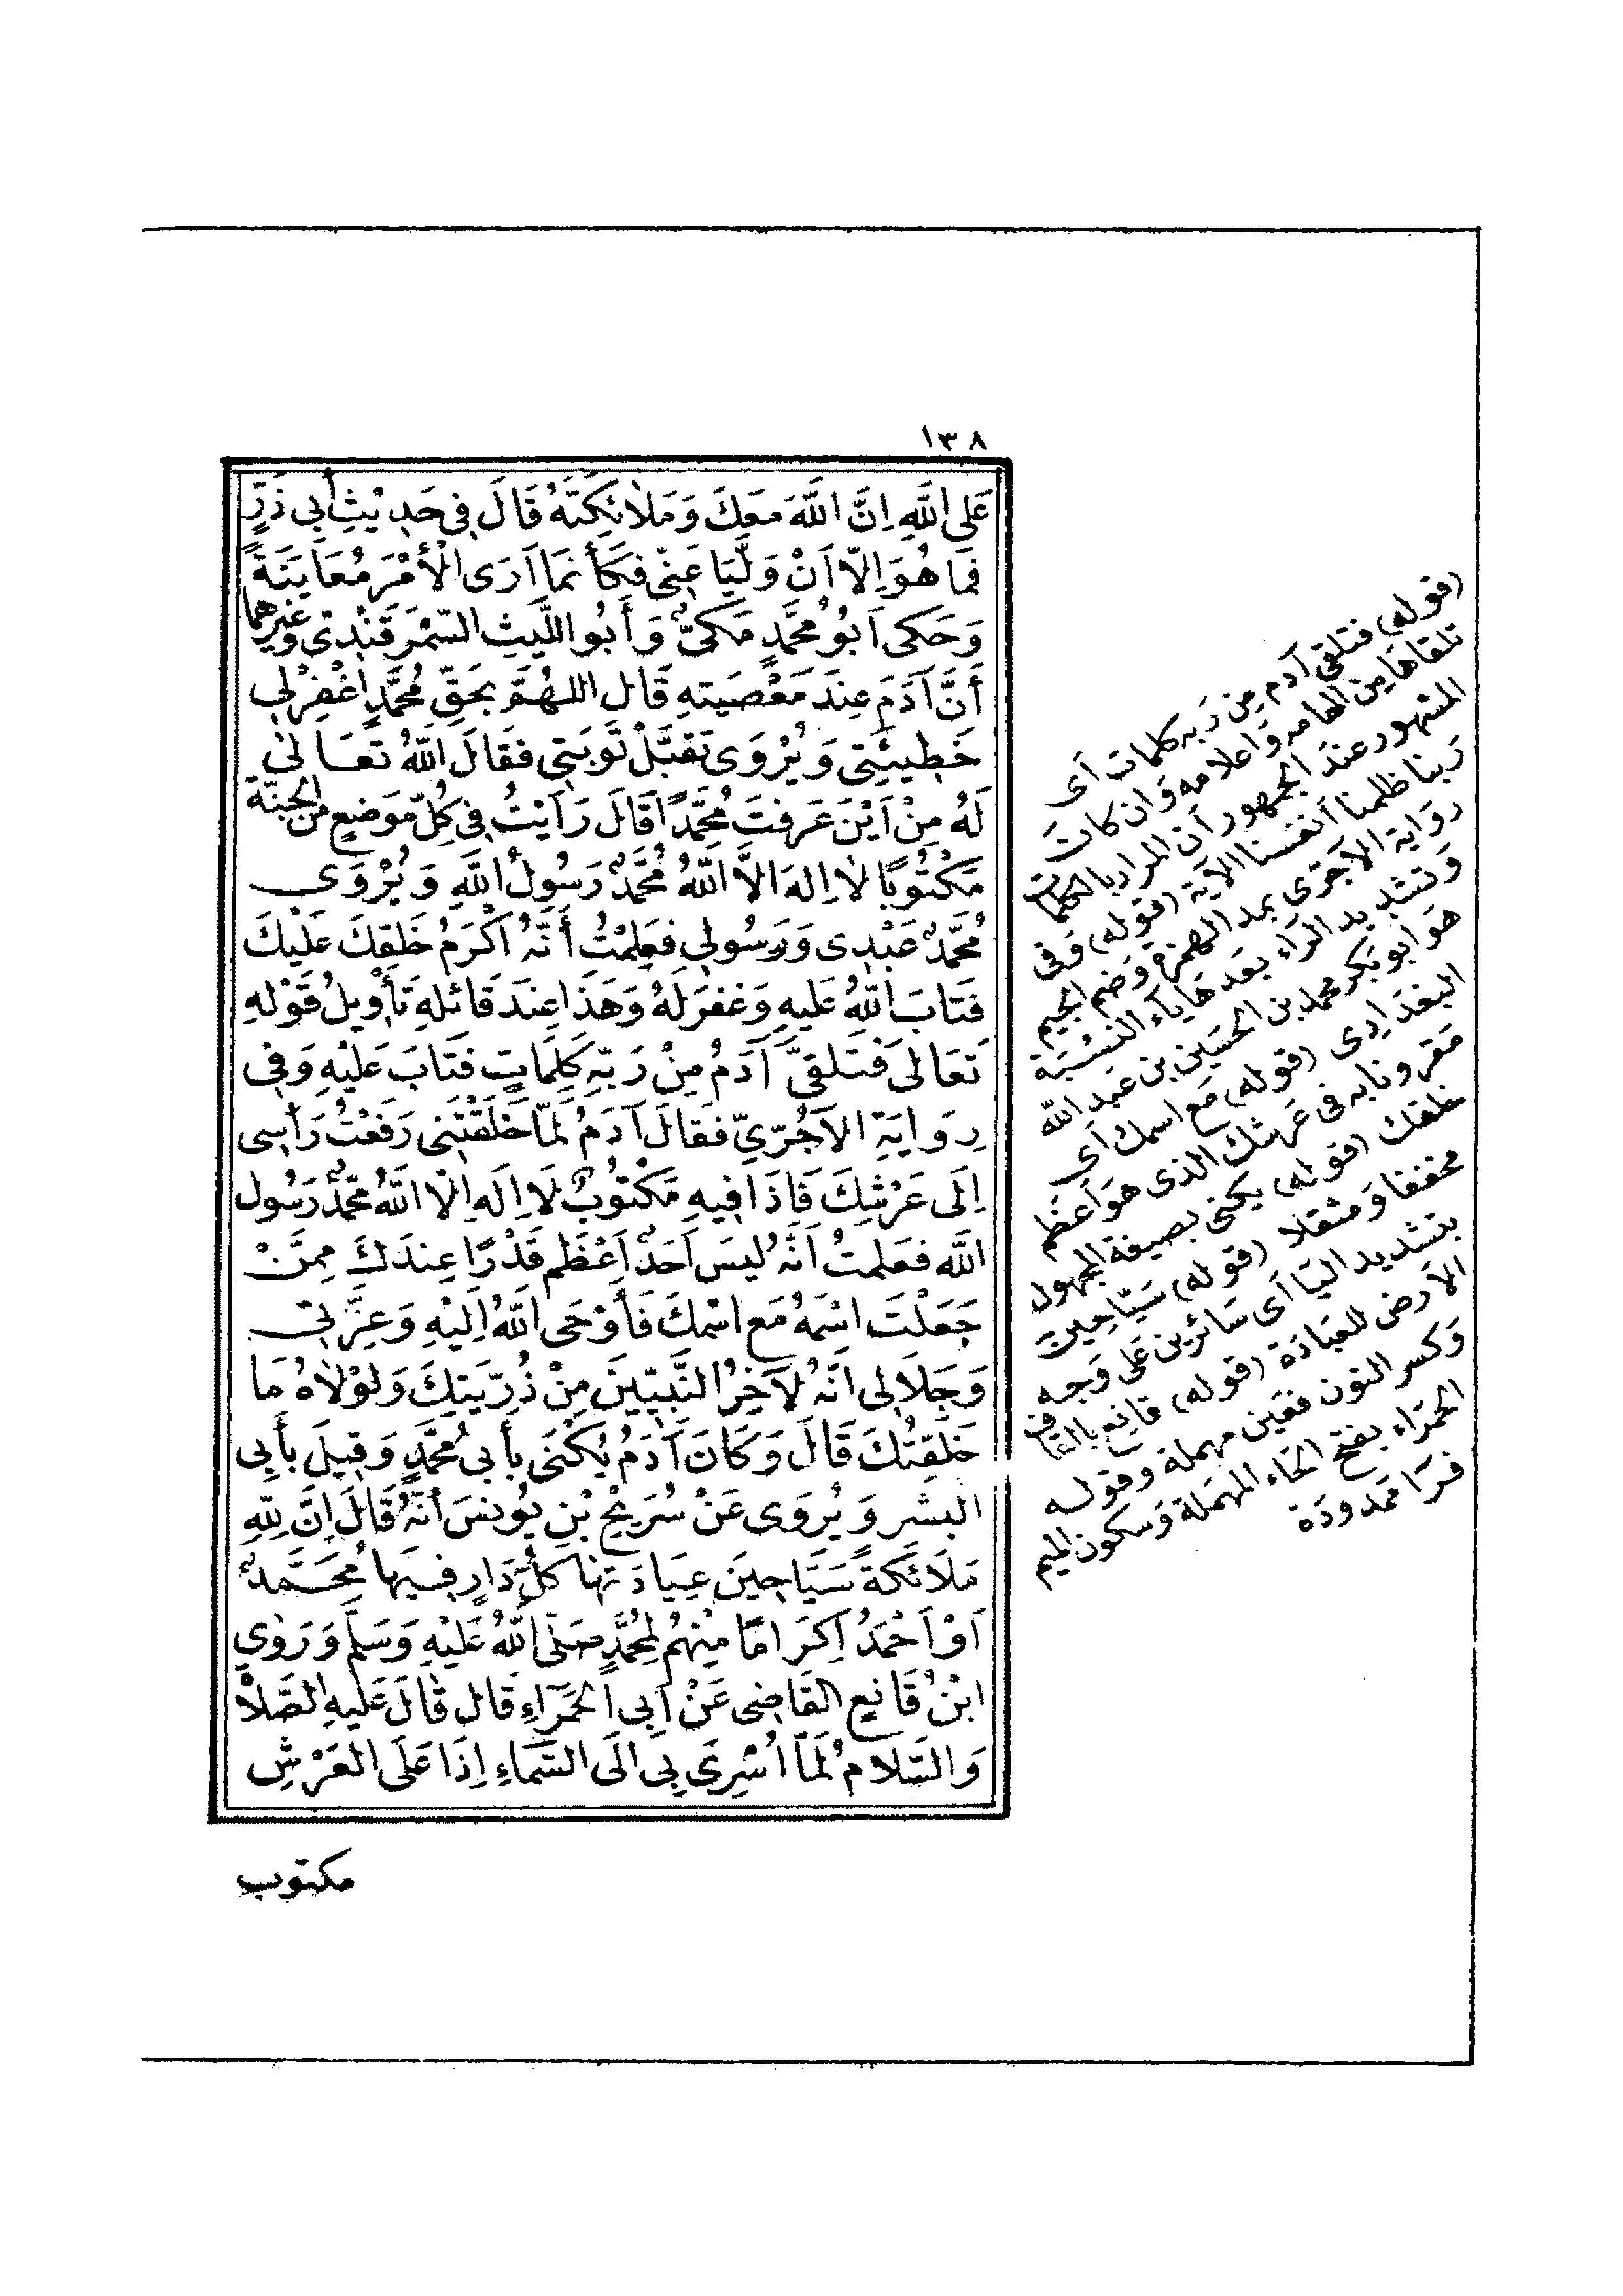 ١٣٨
عَلَى اللَّهِ اِنَّ اللَّهَ مَعَكَ وَمَلَائِكَتَهُ قَالَ فِى حَدِيْثِ أَبِى ذَرٍّ
فَمَا هُوَ اِلَّا اَنْ وَلَّيَا عَنِّى فَكَأَنَّمَا اَرَى الْأَمْرَ مُعَايَنَةً
وَحَكَى اَبُو مُحَمَّدٍ مَكِّىٌّ وَأَبُو اللَّيثِ السَّمْرَقَنْدِىّ وَغيرهما
أَنَّ آدَمَ عِندَ مَعْصِيَتهِ قَال اللهُمَّ بحَقِّ مُحَمَّدٍ اغْفِرْلِى
خَطِيئَتِى وَيُرْوَى تَقَبَّلْ تَوبَتِى فَقَالَ اللَّهُ تَعَالَى
لَهُ مِنْ اَيْنَ عَرَفتَ مُحَمَّدًا قَالَ رَاَيْتُ فِى كُلّ مَوضِعٍ من الجنَّة
مَكْتُوبًا لَا اِلهَ الَّا اللَّهُ مُحَمَّدٌ رَسُولُ اللَّهِ وَيُرْوَى
مُحَمَّدٌ عَبْدِى وَرَسُولِى فَعَلِمْتُ أَنَّهُ اَكْرَمُ خَلقِكَ عَلَيكَ
فَتَابَ اللَّهُ عَلَيهِ وَغَفَرَ لَهُ وَهَذَا عِندَ قَائلهِ تَأْوِيلُ قَوْلهِ
تَعَالَى فَتَلَقىَّ آدَمُ مِنْ رَبّهِ كَلِمَاتٍ فَتَابَ عَلَيْهِ وَفى
رِوَايَةِ الآجُرِّىِّ فَقَالَ آدَمُ لَمَّا خَلَقْتَنِى رَفَعْتُ رَأسِى
اِلَى عَرْشِكَ فَاذَا فِيهِ مَكْتُوبٌ لَا اِلَه اِلَّا اللَّهُ مُحَمَّدٌ رَسُول
اللَّه فعَلمتُ اَنَّهُ لَيسَ اَحَدٌ اَعْظَم قَدْرًا عِندَكَ مِمَّنْ
جَعَلْتَ اسْمَهُ مَع اسْمكَ فَأَوْحَى اللَّهُ اِلَيْهِ وَعِزَّتِى
وَجَلَالِى اِنَّهُ لَآخِرُ النَّبِيّينَ مِنْ ذُرِّيَتِكَ وَلَوْلَاهُ مَا
خَلَقتُكَ قَالَ وَكَانَ آدَمُ يُكْنَى بأَبى مُحَمَّدٍ وَقِيلَ بأَبِى
البشَر وَيُروَى عَنْ سُرَيْج بْنِ يُونسَ أَنَّهُ قَالَ اِنَّ لِلّهِ
مَلَائكةً سَيَّاحِينَ عِيَادَتهَا كلُّ دَارٍ فِيهَا مُحَمَّدٌ
اَوْ اَحْمَدُ اِكرَامًا مِنْهُم لِمُحَمَّدٍ صَلَّى اللَّهُ عَلَيْهِ وَسَلَّم وَرَوَى
ابْنُ قَانِعٍ القَاضِى عَنْ اَبِى الحَمْرَاءِ قَال قَالَ عَلَيهِ الصَّلاةُ
وَالسَّلَامُ لَمَّا اُسْرِىَ بِى اِلَى السَّمَاءِ اِذَا عَلَى العَرْشِ
مكتوب
(قوله) فتلقى آدم من رَبه كلمات أى
تلقاها من الهامه وَاعلامه وَان كانَ
المشهور عندَ الجمهور أن المراد بالكلمات
رَبنا ظلمنا أنفسنا الآية (قوله) وَفى
روَاية الآجرى بمد الهمزة وَضم الجيم
وَتشديد الراء بعَدهَا ياء النسبَة
هوَ أبو بكر محمد بن الحسَين بن عبد الله
البغدَادى (قوله) مَع اسمك أى
مَقرونا به فى عَرشك الذى هوَ أعظم
خلقك (قوله) يكنى بصيغة المجهول
مخففا وَمثقلا (قوله) سَيّاحِين
بتشديد اليَا أى سَائرين عَلى وَجه
الاَرض للعبَادَة (قوله) قانِع بالقاف
وَكسر النون فعَين مهملة وقوله
الحمرَاء بفتح الحَاء المهمَلة وَسكون الميم
فرَا ممدودَة